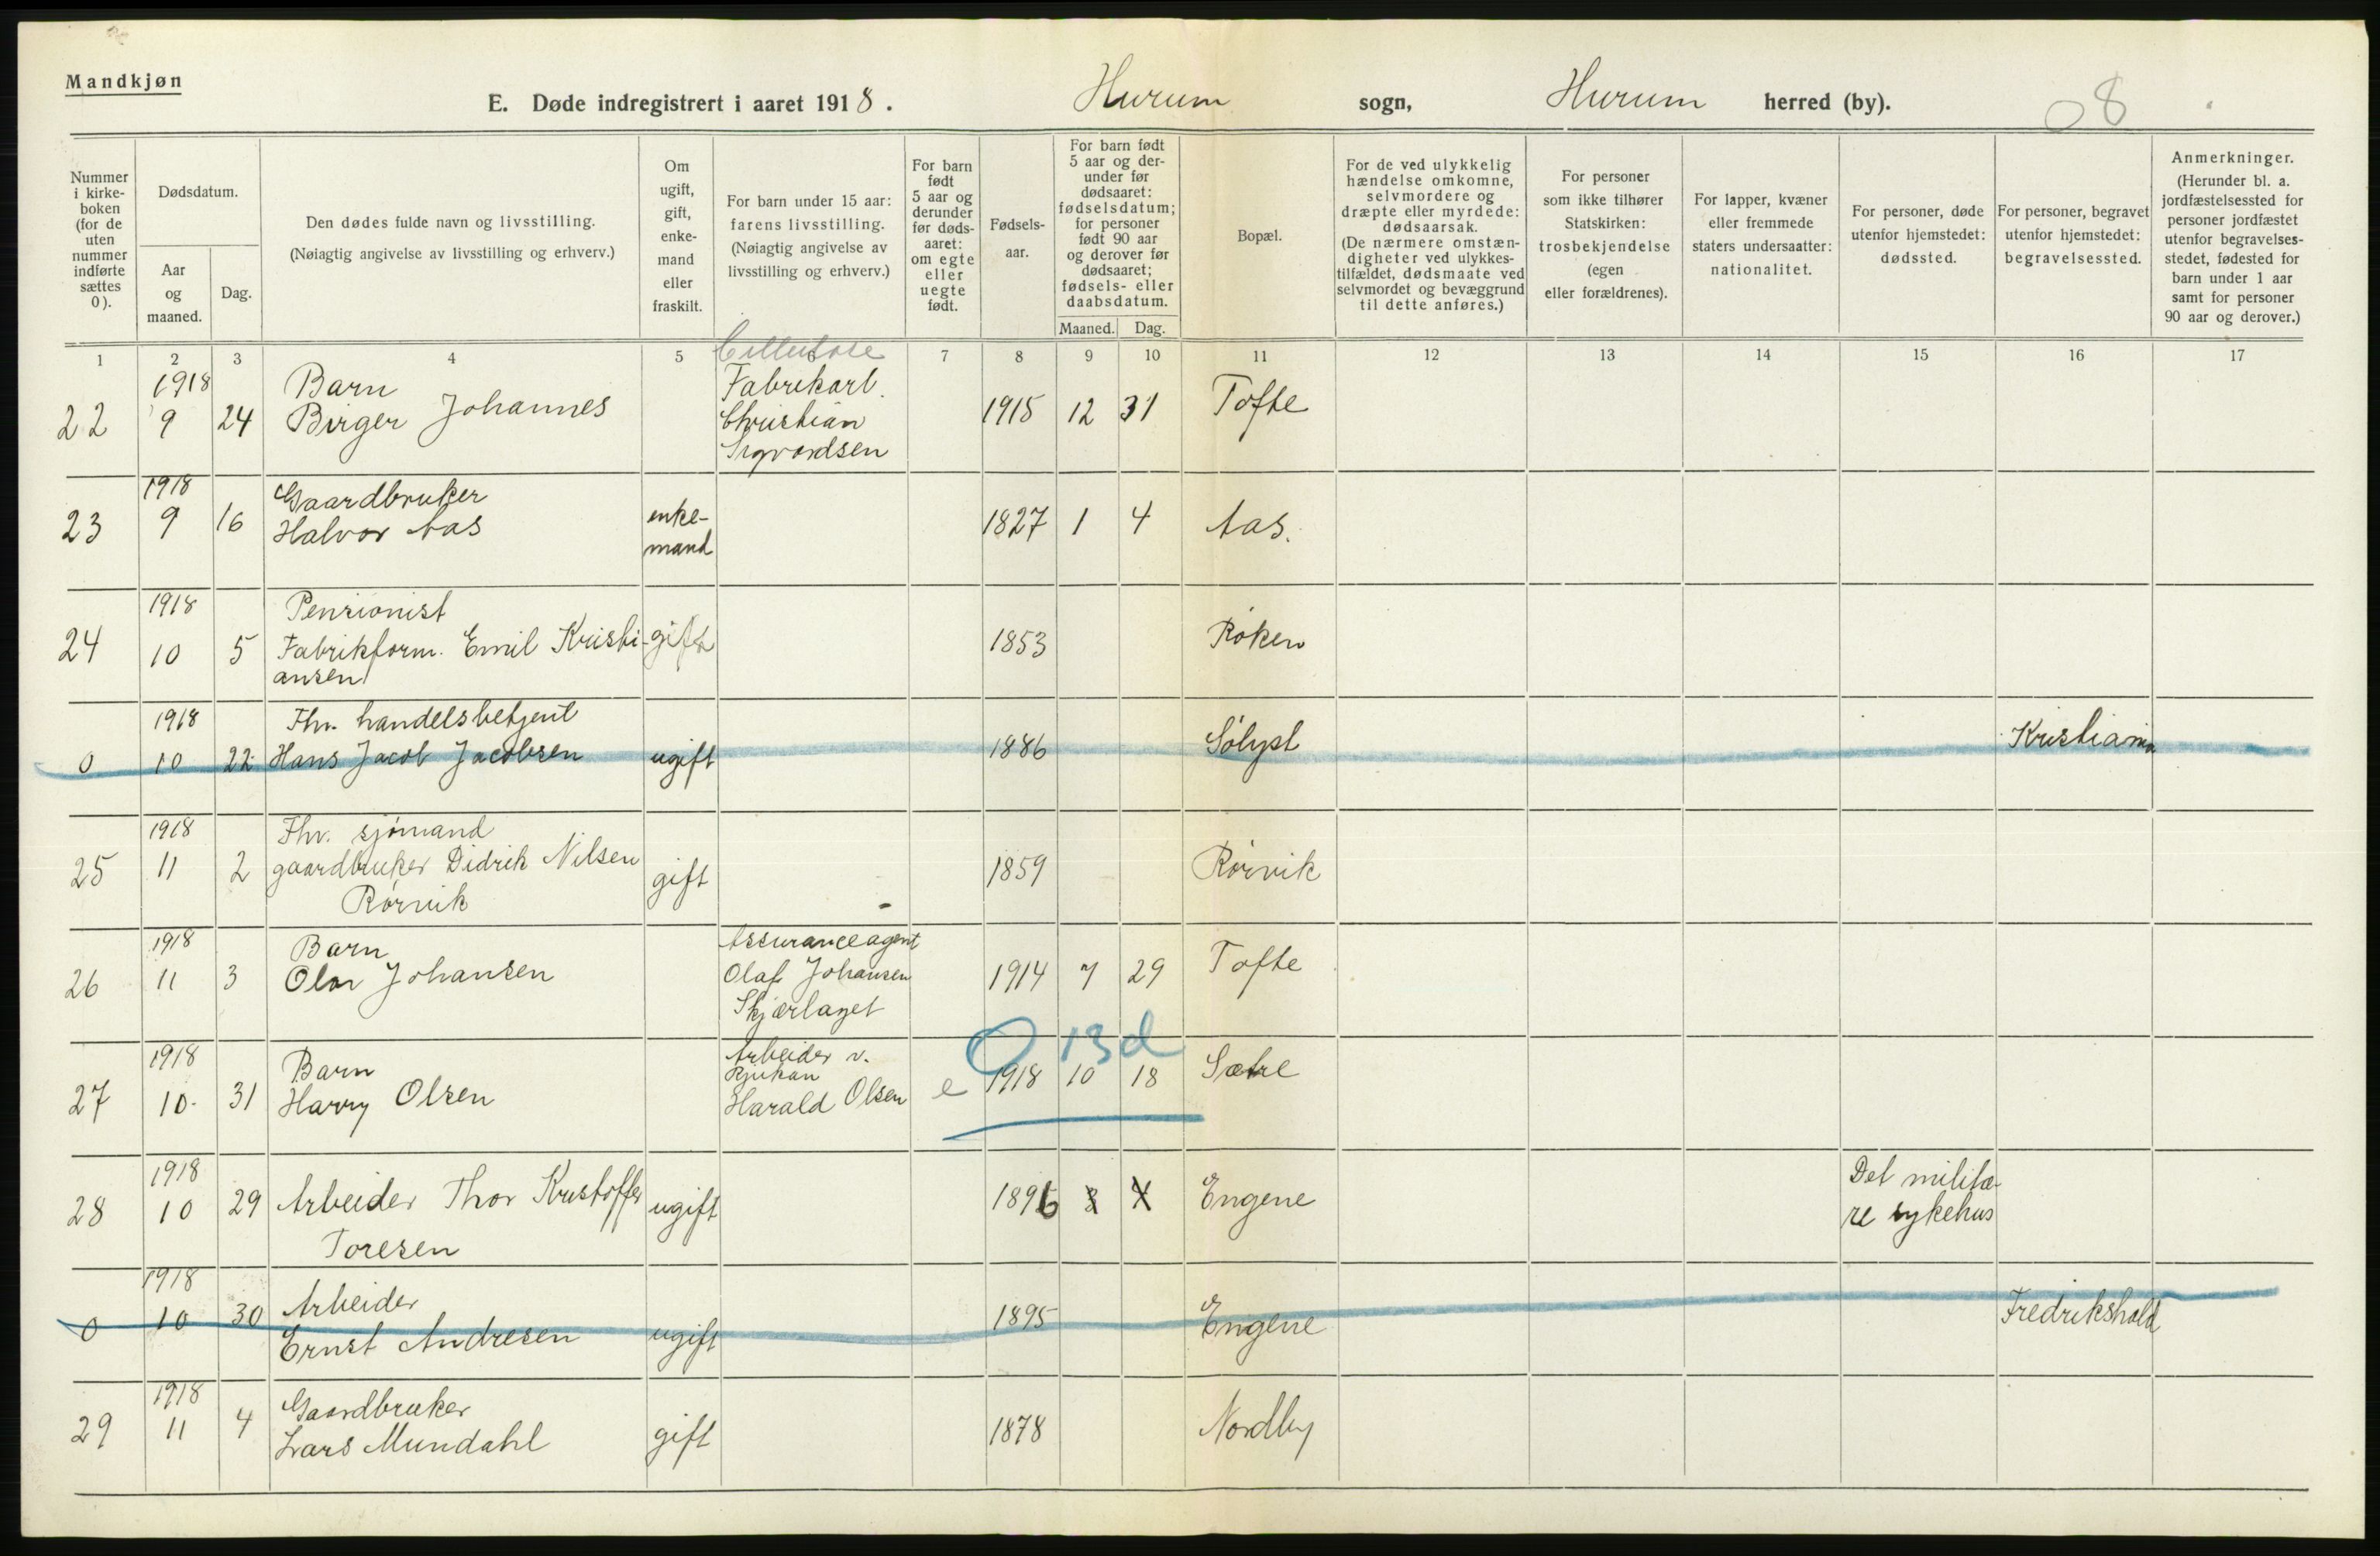 Mandkjøn
E. Døde indregistrert i aaret 1918. Hurum sogn, Hurum herred (by). 08
Nummer i kirke-boken (for de uten nummer indførte sættes 0).
Dødsdatum.
Aar og maaned.
Dag.
Den dødes fulde navn og livsstilling.
(Nøiagtig angivelse av livsstilling og erhverv.)
Om ugift, gift, enke-mand eller fraskilt.
For barn under 15 aar: farens livsstilling.
(Nøiagtig angivelse av livsstilling og erhverv.)
For barn født 5 aar og derunder før døds-aaret: om egte eller uegte født.
Fødsels-aar.
For barn født 5 aar og der-under før dødsaaret: fødselsdatum; for personer født 90 aar og derover før dødsaaret; fødsels- eller daabsdatum.
Maaned. Dag.
Bopæl.
For de ved ulykkelig hændelse omkomne, selvmordere og dræpte eller myrdede: dødsaarsak.
(De nærmere omstæn-digheter ved ulykkes-tilfældet, dødsmaate ved selvmordet og bevæggrund til dette anføres.)
For personer som ikke tilhører Statskirken: trosbekjendelse (egen eller forældrenes).
For lapper, kvæner eller fremmede staters undersaatter: nationalitet.
For personer, døde utenfor hjemstedet: dødssted.
For personer, begravet utenfor hjemstedet: begravelsessted.
Anmerkninger.
(Herunder bl. a. jordfæstelsessted for personer jordfæstet utenfor begravelses-stedet, fødested for barn under 1 aar samt for personer 90 aar og derover.)
1 2 3 4 5 6 7 8 9 10 11 12 13 14 15 16 17
Cellulose
1918 Barn Fabrikarb.
22 9 24 Birger Johannes Christian 1915 12 31 Tofte
Sigvardsen
1918 Gaardbruker
23 9 16 Halvor Aas enke-mand 1827 1 4 Aas.
1918 Pensionist
24 10 5 Fabrikform. Emil Kristi- gift 1853 Røken
ansen
1918 Fhv. handelsbetjent
0 10 22 Hans Jacob Jacobsen ugift 1886 Sølyst Kristiania
1918 Fhv. sjømand
25 11 2 gaardbruker Didrik Nilsen gift 1859 Rørvik
Rørvik
1918 Barn Assuranceagent
26 11 3 Olav Johansen Olaf Johansen 1914 7 29 Tofte
Skjærlaget
0 13 d
1918 Barn Arbeider v.
Rjukan
27 10 31 Harry Olsen Harald Olsen e 1918 10 18 Sætre
1918 Det militæ-
28 10 29 Arbeider Thor Kristoffer ugift 1896 3 4 Engene re sykehus
Toresen
1918 Arbeider
0 10 30 Ernst Andresen ugift 1895 Engene Fredrikshald
1918 Gaardbruker
29 11 4 Lars Mundahl gift 1878 Nordby